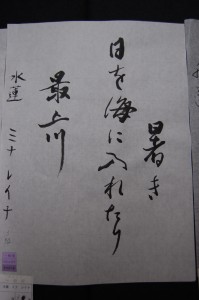 暑き
日を海に入れたり
最上川
水蓮 ミナ レイナ